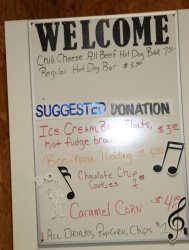 WELCOME
Chili Cheese All Beef Hot Dog Bar 7
Regular Hot Dog Bar $5
SUGGESTED DONATION
Ice Cream Floats, $3
hot fudge
Boo-nana Pudding $4
Chocolate Chip
Cookies $1
Caramel Corn $4
All Drinks, Popcorn, Chips $1